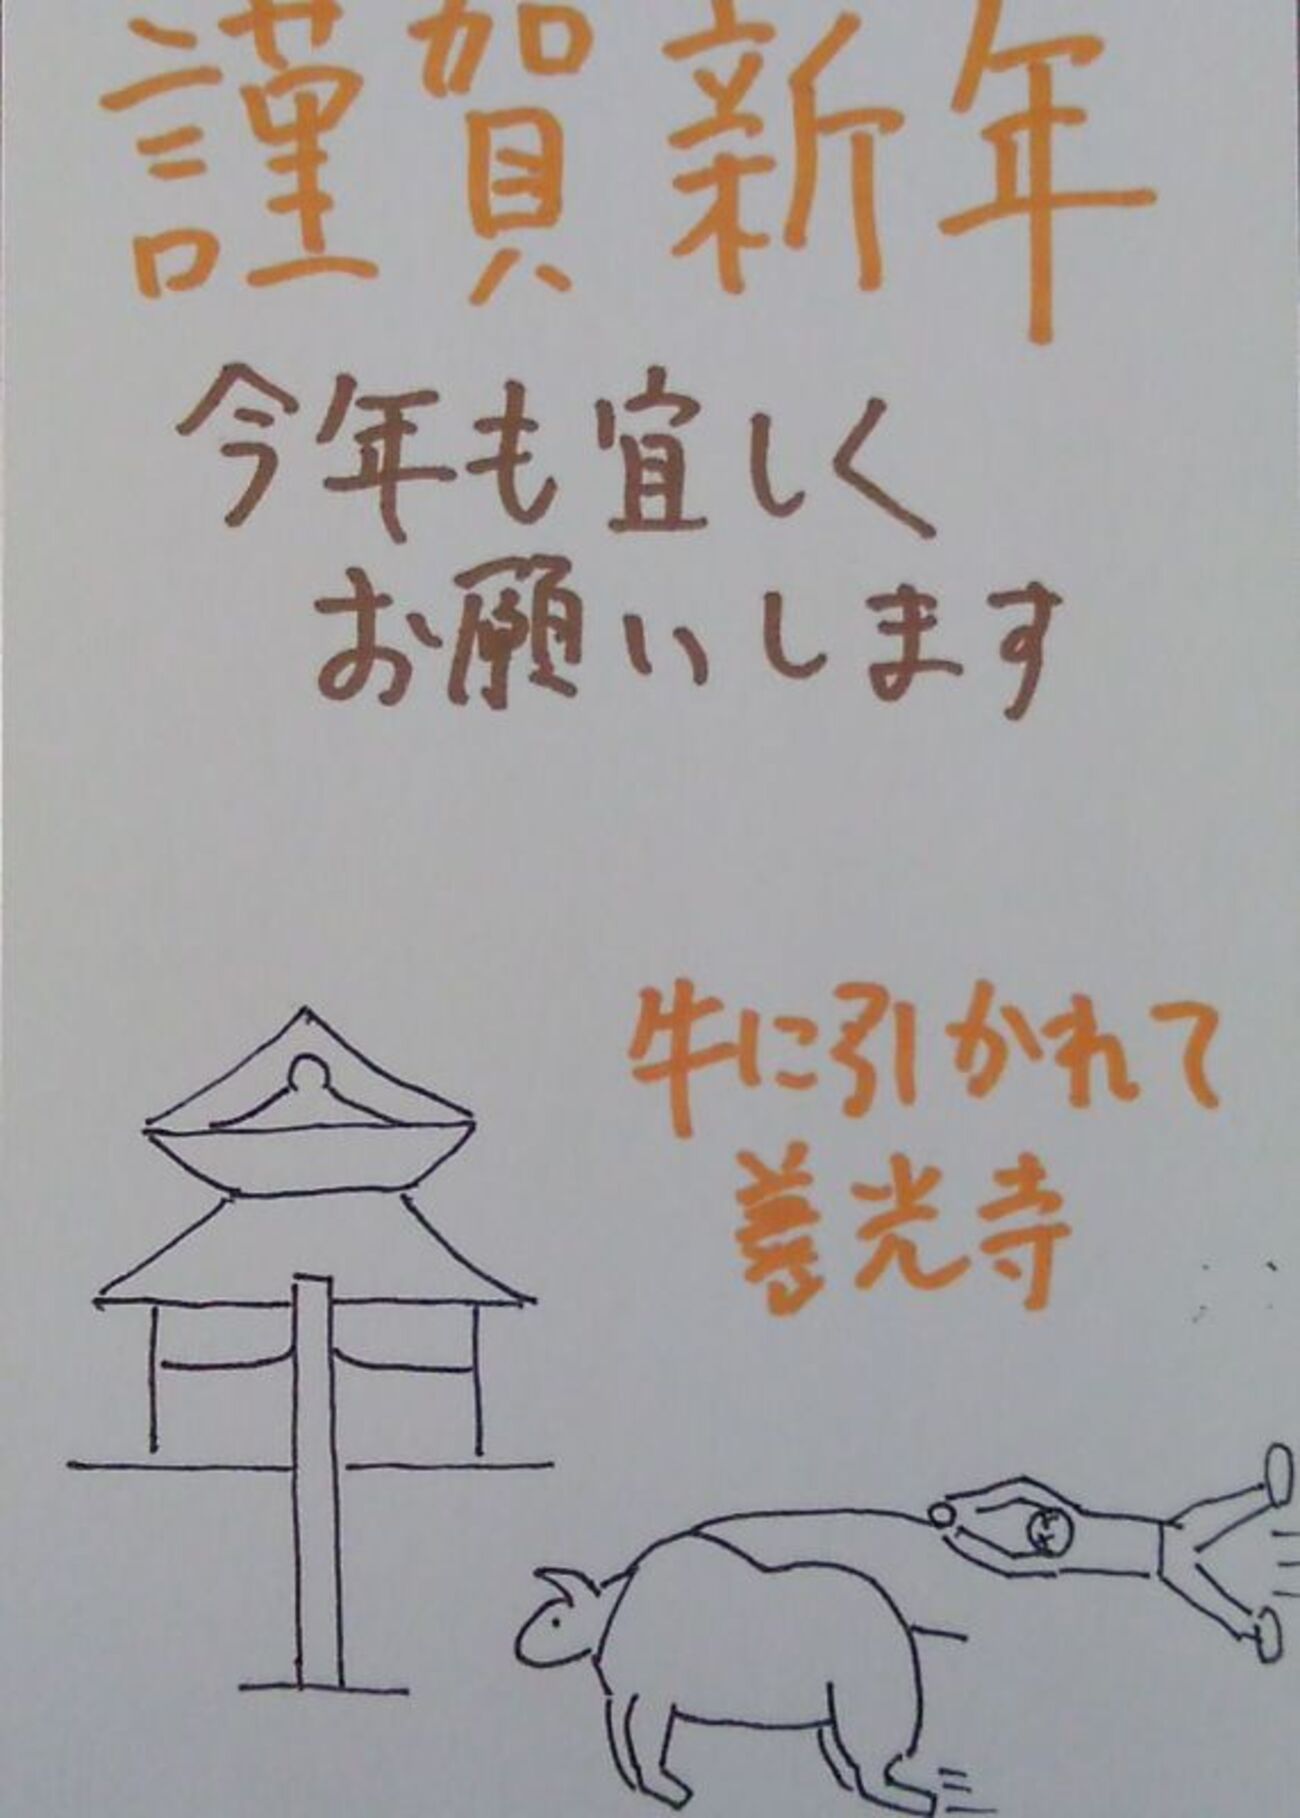 謹賀新年
今年も宜しく
お願いします
牛に引かれて
善光寺